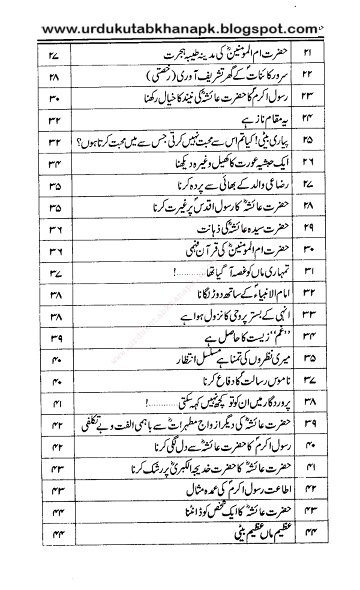 www.urdukutabkhanapk.blogspot.com
۲۱ حضرت ام المومنینؓ کی مدینہ طیبہ ہجرت ۲۷
۲۲ سرور کائناتؐ کے گھر تشریف آوری (رخصتی) ۲۸
۲۳ رسول اکرمؐ کا حضرت عائشہؓ کی نیند کا خیال رکھنا ۳۰
۲۴ یہ مقام ناز ہے ۳۲
۲۵ پیاری بیٹی! کیا تم اس سے محبت نہیں کرتی جس سے میں محبت کرتا ہوں؟ ۳۲
۲۶ ایک حبشیہ عورت کا کھیل وغیرہ دیکھنا ۳۴
۲۷ رضاعی والد کے بھائی سے پردہ کرنا ۳۵
۲۸ حضرت عائشہؓ کا رسول اقدسؐ پر غیرت کرنا ۳۵
۲۹ حضرت سیدہ عائشہؓ کی ذہانت ۳۶
۳۰ حضرت ام المومنینؓ کی قرآن فہمی ۳۶
۳۱ تمہاری ماں کو غصہ آ گیا تھا..........! ۳۷
۳۲ امام الانبیاءؐ کے ساتھ دوڑ لگانا ۳۸
۳۳ انہی کے بستر پر وحی کا نزول ہوا ہے ۳۸
۳۴ ”غم“ زیست کا حاصل ہے ۳۹
۳۵ میری نظروں کی تمنا ہے مسلسل انتظار ۴۰
۳۷ ناموس رسالت کا دفاع کرنا ۴۰
۳۸ پروردگار میں ان کو تو کچھ نہیں کہہ سکتی..........! ۴۱
۳۹ حضرت عائشہؓ کی دیگر ازواج مطہراتؓ سے باہمی الفت و بے تکلفی ۴۲
۴۰ رسول اکرمؐ کا حضرت عائشہؓ سے دل لگی کرنا ۴۲
۴۱ حضرت عائشہؓ کا حضرت خدیجۃ الکبریؓ پر رشک کرنا ۴۳
۴۲ اطاعت رسول اکرمؐ کی عمدہ مثال ۴۳
۴۳ حضرت عائشہؓ کا ایک شخص کو ڈانٹنا ۴۴
۴۴ عظیم ماں عظیم بیٹی ۴۴